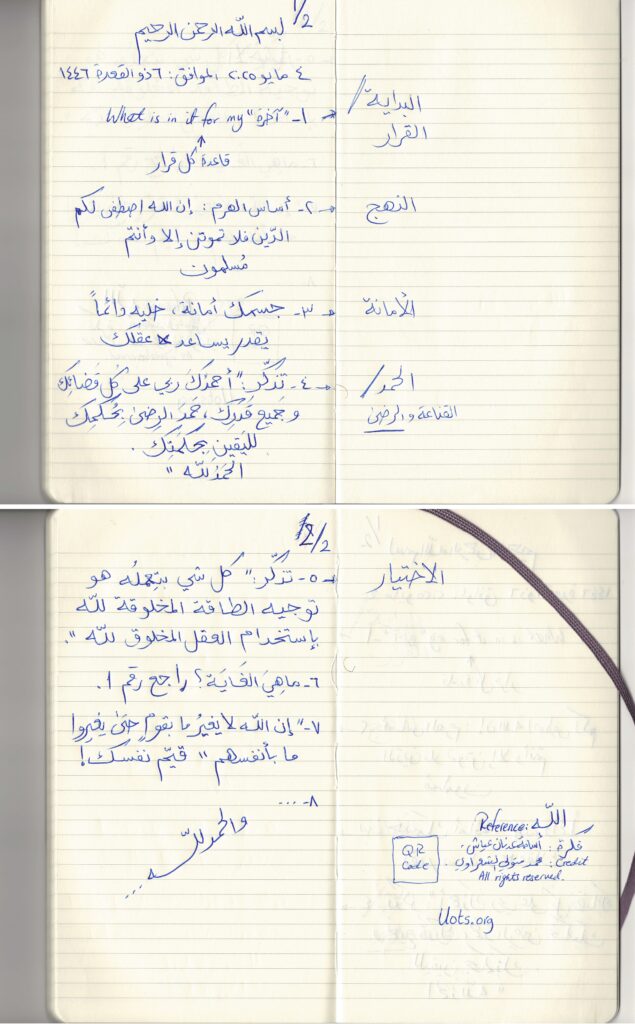 1/2
بسم الله الرحمن الرحيم
٤ مايو ٢٠٢٥ الموافق: ٦ ذو القعدة ١٤٤٦
البداية/
القرار
١- What is in it for my "آخرة"
↑
قاعدة كل قرار
النهج
٢- أساس الهرم: إن الله اصطفى لكم
الدّين فلا تموتن إلا وأنتم
مُسلمون
الأمانة
٣- جسمك أمانة، خليه دائماً
يقدر يساعد عقلك
الحمد/
القناعة والرضى
٤- تذكّر: "أحمدُكَ ربي على كُلِ قضائِكَ
وجَميعِ قَدَرِك، حَمدَ الرِضىٰ بِحُكمِك
لليَقينِ بِحكمَتِك.
الحَمدُ للّه"
2/2
الاختيار
٥- تذكّر: "كل شي بتِعملُه هو
توجيه الطاقة المخلوقة للّه
بإستخدام العقل المخلوق للّه".
٦- ماهِيَ الغَايَة؟ راجع رقم ١.
٧- "إن اللّه لا يغيرُ ما بقومٍ حتىٰ يغيِروا
ما بأنفسهم" قيّم نفسك!
٨- ....
والحمد للّه...
Reference: اللّه
فكرة: أسامة عدنان عياش.
Credit: محمد متولي الشعراوي.
All rights reserved.
QR
Code
Uots.org